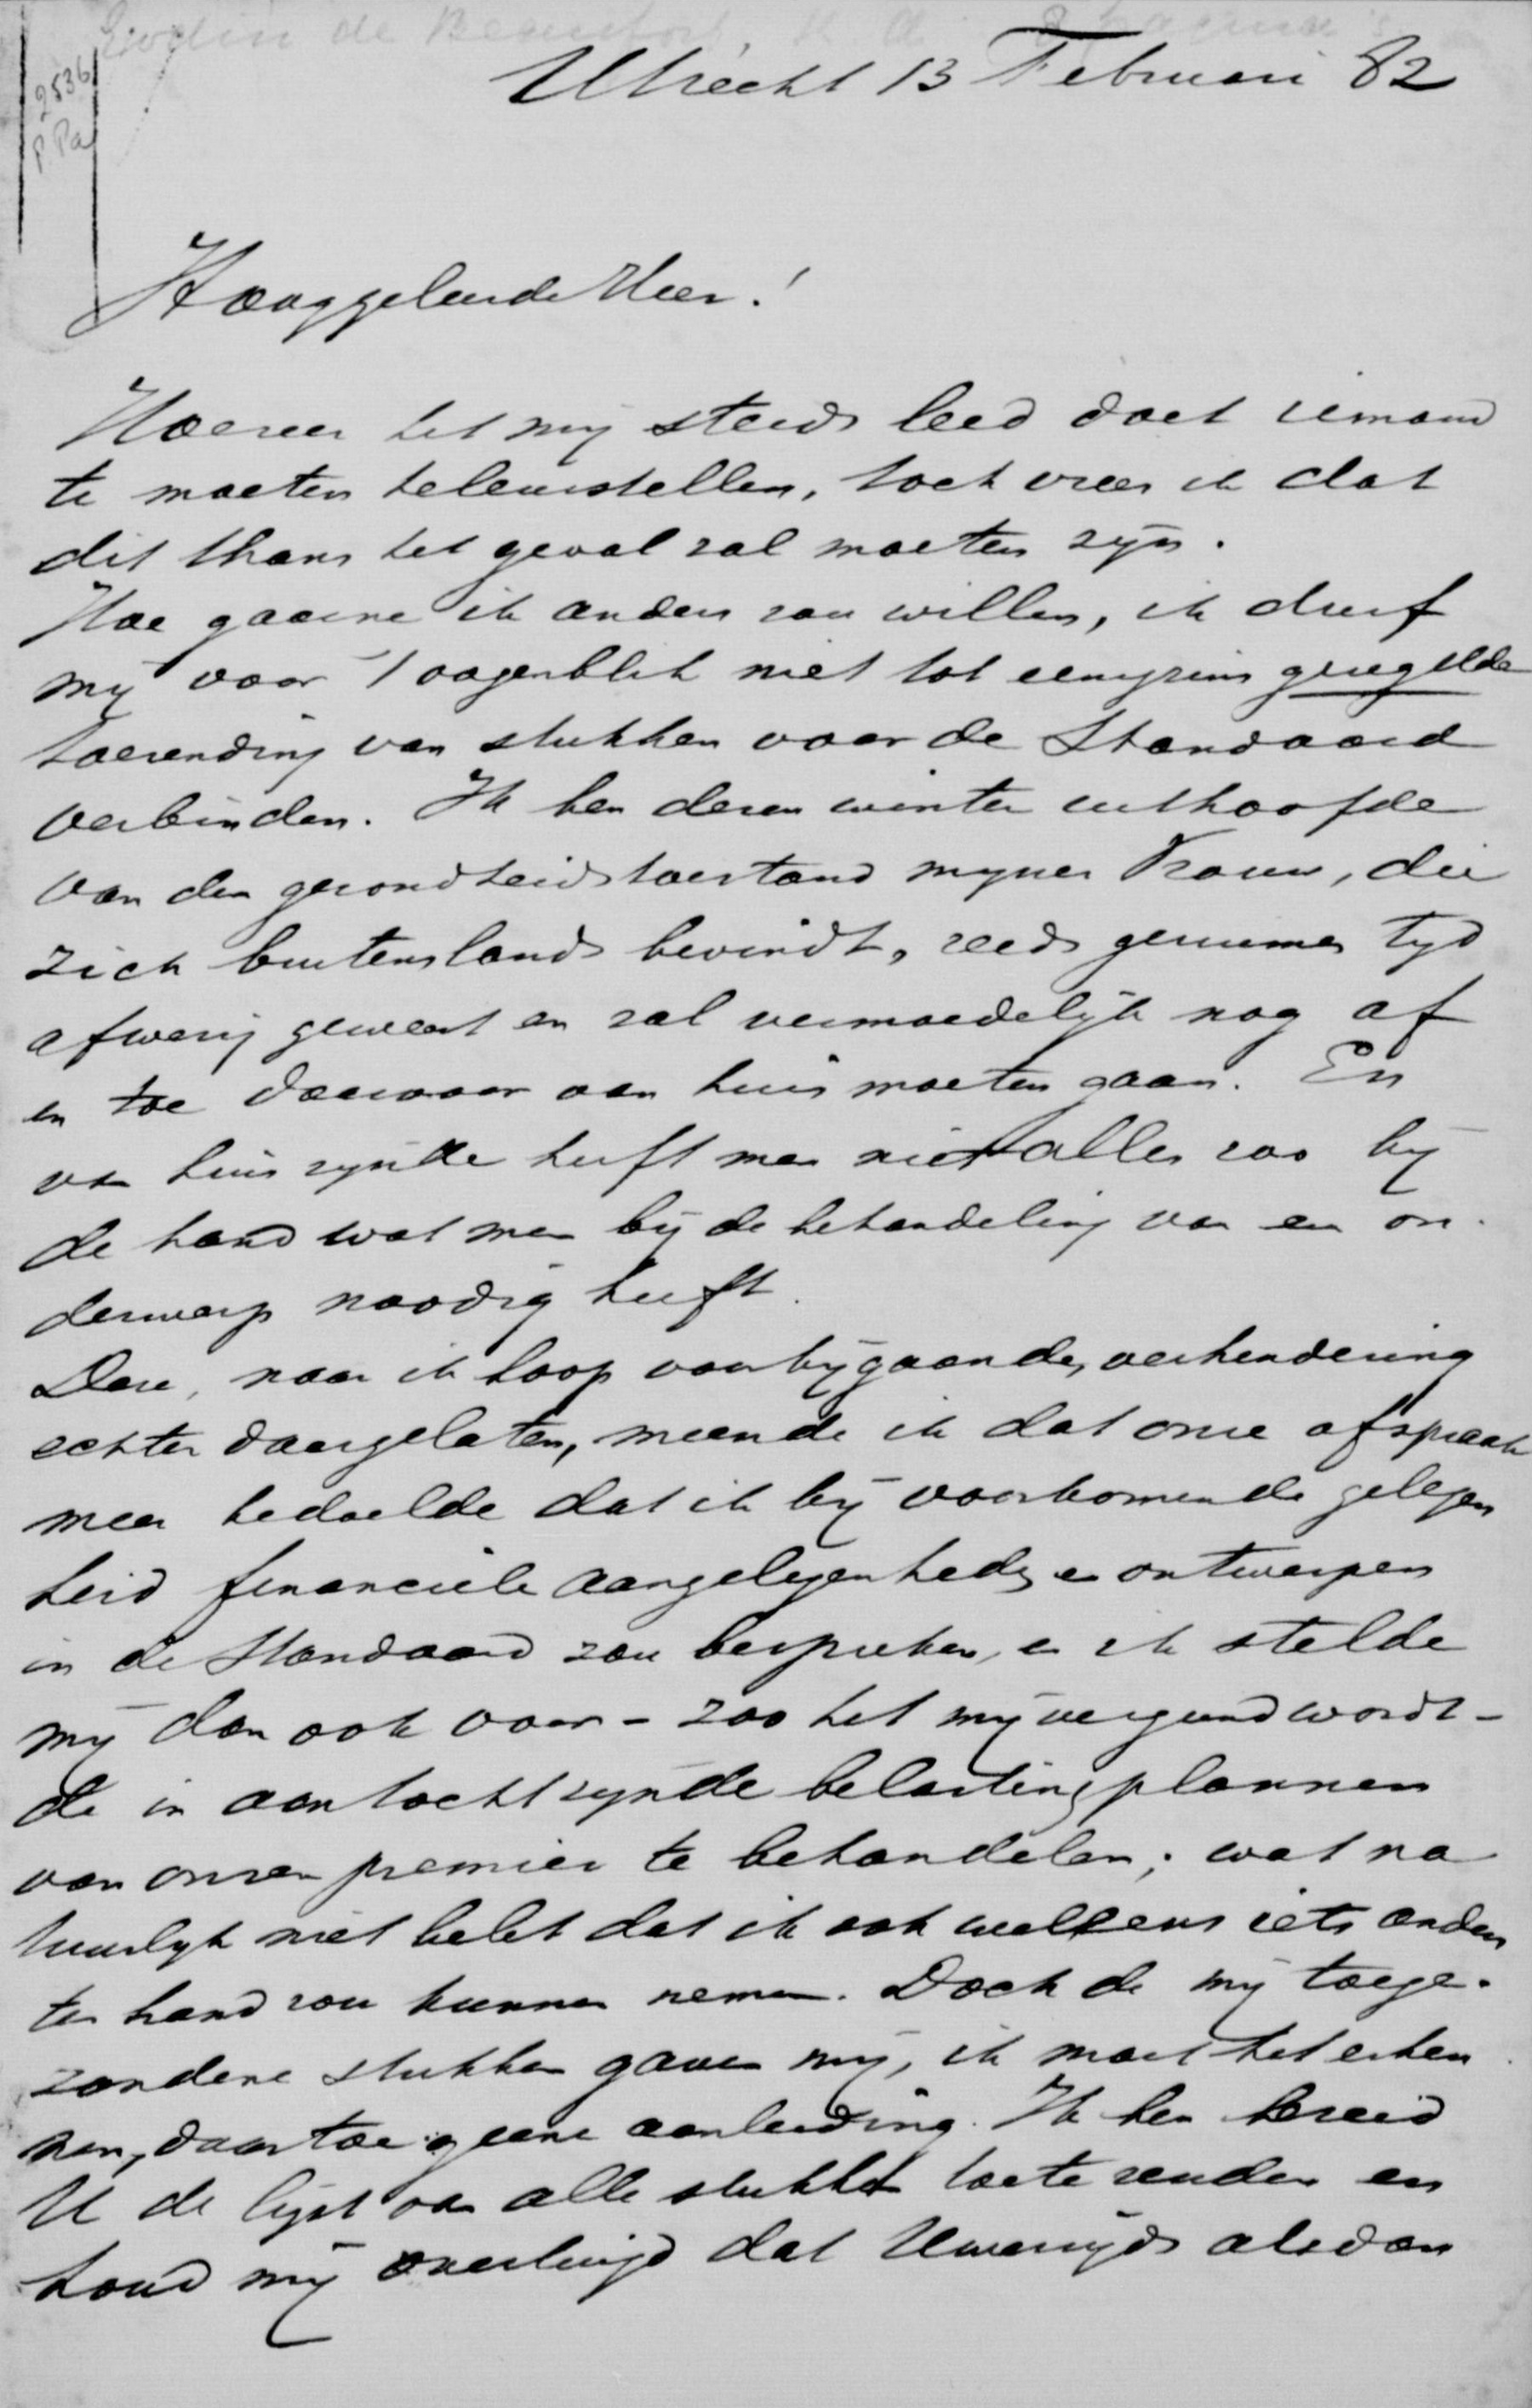 Godin de Beaufort
2536
P. Pa
Utrecht 13 Februari 82
Hooggeleerde Heer!
Hoezeer het mij steeds leed doet iemand
te moeten teleurstellen, toch vrees ik dat
dit thans het geval zal moeten zijn.
Hoe gaarne ik anders zou willen, ik durf
mij voor 't oogenblik niet tot eenigzins geregelde
toezending van stukken voor de Standaard
verbinden. Ik ben dezen winter uithoofde
van den gezondheidstoestand mijner Vrouw, die
zich buitenslands bevindt, reeds geruimen tijd
afwezig geweest en zal vermoedelijk nog af
en toe daarvoor van huis moeten gaan. En
van huis zijnde heeft men niet alles zoo bij
de hand wat men bij de behandeling van een on-
derwerp noodig heeft.
Deze, naar ik hoop voorbijgaande, verhindering
echter daargelaten, meende ik dat onze afspraak
meer bedoelde dat ik bij voorkomende gelegen
heid financiele aangelegenheden en ontwerpen
in de Standaard zou bespreken, en ik stelde
mij dan ook voor - zoo het mij vergund wordt -
de in aantocht zijnde belastingplannen
van onzen premier te behandelen; wat na
tuurlijk niet belet dat ik ook wel eens iets anders
ter hand zou kunnen nemen. Doch de mij toege-
zondene stukken gaven mij, ik moet het erken
nen, daartoe geene aanleiding. Ik ben bereid
U de lijst van alle stukken toe te zenden en
houd mij overtuigd dat Uwerzijds alsdan